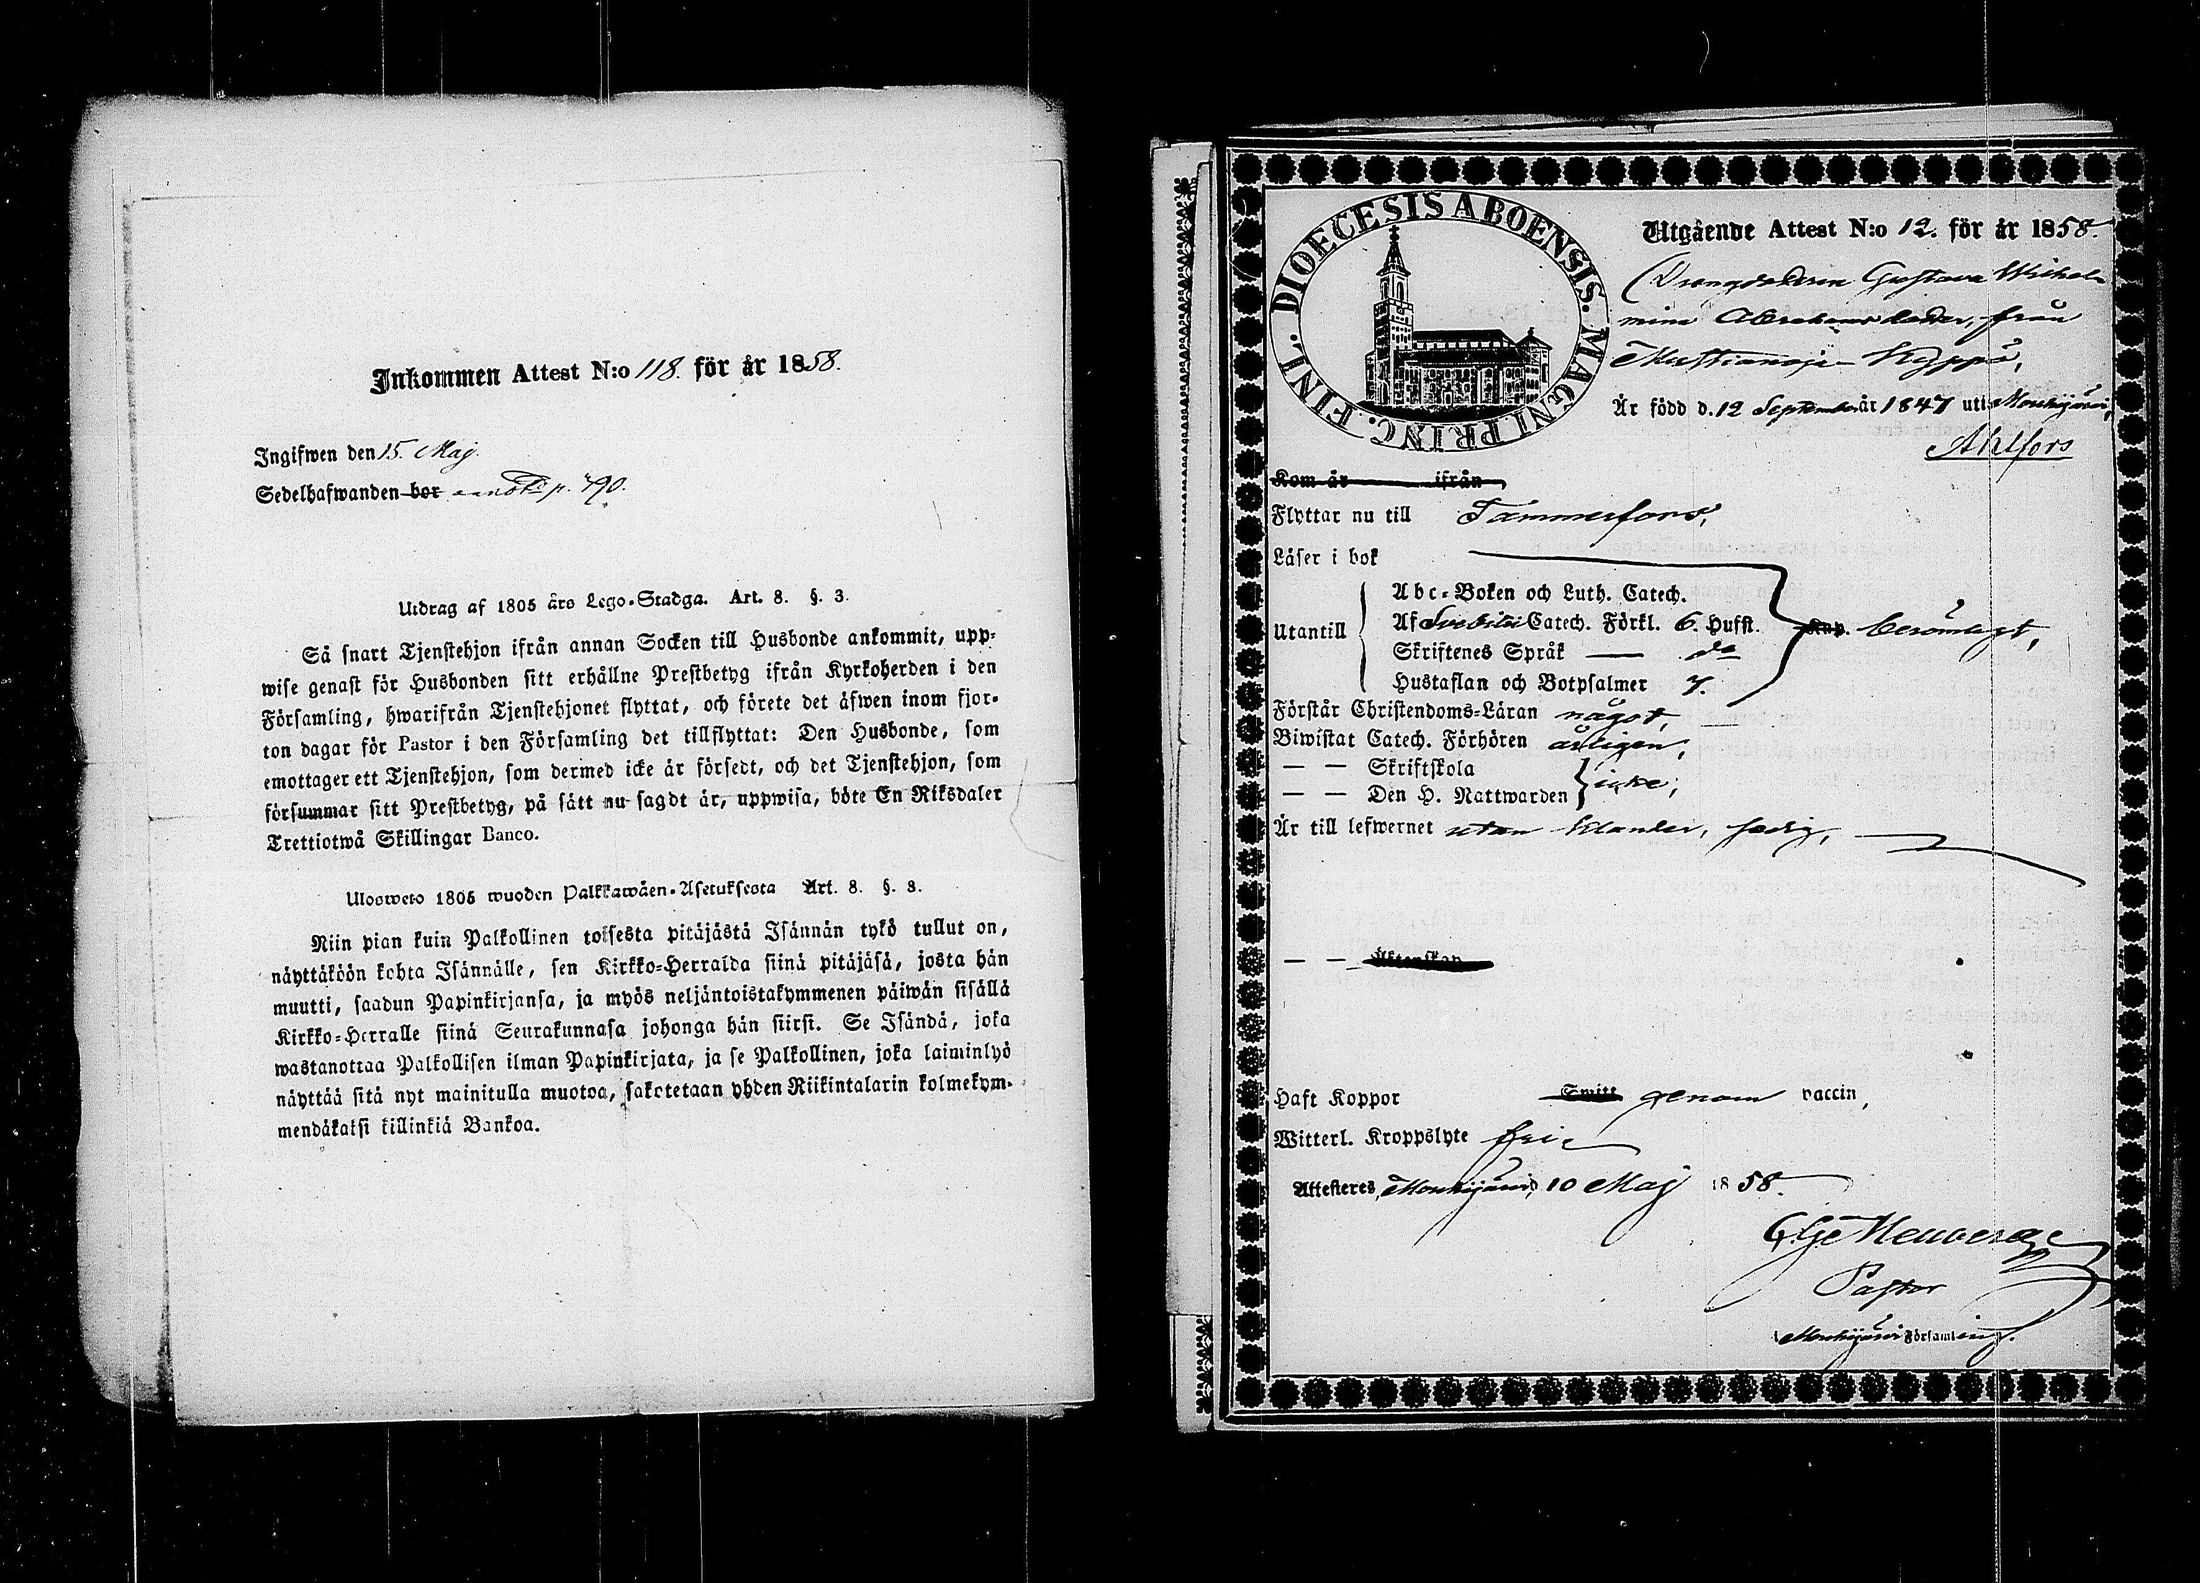 Inkommen Attest N:o 118. för år 1858.
Ingifwen den 15. Maj.
Sedelhafwanden bor annot. p. 790.
Utdrag af 1805 års Lego-Stadga. Art. 8. §. 3.
Så snart Tjenstehjon ifrån annan Socken till Husbonde ankommit, upp-
wise genast för Husbonden sitt erhållne Prestbetyg ifrån Kyrkoherden i den
Församling, hwarifrån Tjenstehjonet flyttat, och förete det äfwen inom fjor-
ton dagar för Pastor i den Församling det tillflyttat: Den Husbonde, som
emottager ett Tjenstehjon, som dermed icke är försedt, och det Tjenstehjon, som
försummar sitt Prestbetyg, på sätt nu sagdt är, uppwisa, böte En Riksdaler
Trettiotwå Skillingar Banco.
Ulosweto 1805 wuoden Palkkawäen-Asetuksesta Art. 8. §. 3.
Niin pian kuin Palkollinen toisesta pitäjästä Isännän tykö tullut on,
näyttäköön kohta Isännälle, sen Kirkko-Herralda siinä pitäjäsä, josta hän
muutti, saadun Papinkirjansa, ja myös neljäntoistakymmenen päiwän sisällä
Kirkko-Herralle siinä Seurakunnasa johonga hän siirsi. Se Isändä, joka
wastanottaa Palkollisen ilman Papinkirjata, ja se Palkollinen, joka laiminlyö
näyttää sitä nyt mainitulla muotoa, sakotetaan yhden Riikintalarin kolmekym-
mendäkaksi killinkiä Bankoa.
DIOECESIS ABOENSIS. MAGNI PRINC. FINL.
Utgående Attest N:o 12. för år 1858.
Drängdottren Gustava Wilhel-
mina Abrahamsdotter, från
Kyppö,
Är född d. 12 September år 1847 uti Mouhijärvi,
Ahlfors
Kom år ifrån
Flyttar nu till Tammerfors,
Läser i bok
Utantill
Abc-Boken och Luth. Catech.
Af Svebilii Catech. Förkl. 6. Hufst.
Skriftenes Språk — do
Hustaflan och Botpsalmer 7.
berömligt,
Förstår Christendoms-Läran något,
Biwistat Catech. Förhören årligen,
— — Skriftskola
— — Den H. Nattwarden icke;
Är till lefwernet utan klander, sedig,
— — Äktenskap
Haft Koppor Smitt genom vaccin,
Witterl. Kroppslyte fri
Attesteres, Mouhijärvi, 10 Maj 1858.
Pastor
i Mouhijärvi Församling.